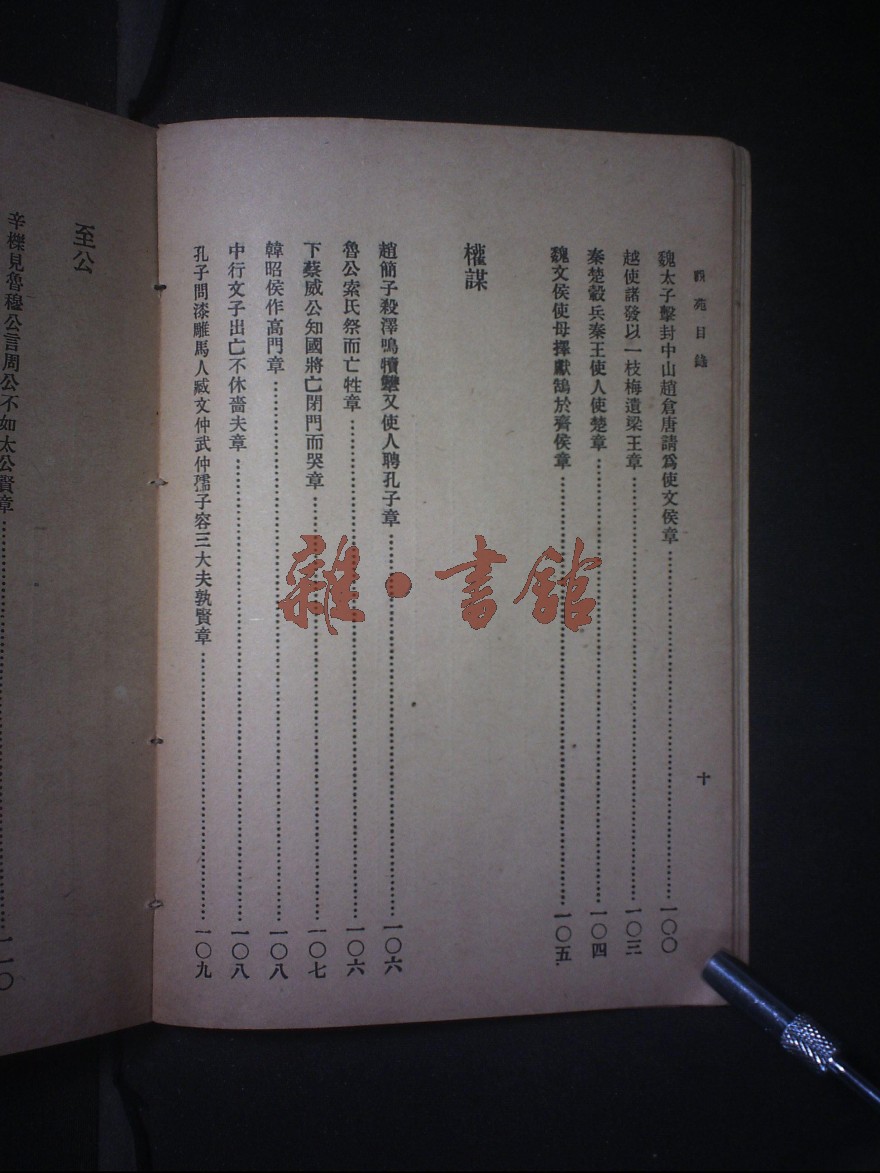 說苑目錄
十
魏太子擊封中山趙倉唐請爲使文侯章……一〇〇
越使諸發以一枝梅遺梁王章……一〇三
秦楚轂兵秦王使人使楚章……一〇四
魏文侯使毋擇獻鵠於齊侯章……一〇五
權謀
趙簡子殺澤鳴犢犨又使人聘孔子章……一〇六
魯公索氏祭而亡牲章……一〇六
下蔡威公知國將亡閉門而哭章……一〇七
韓昭侯作高門章……一〇八
中行文子出亡不休嗇夫章……一〇八
孔子問漆雕馬人臧文仲武仲孺子容三大夫孰賢章……一〇九
至公
辛櫟見魯穆公言周公不如太公賢章……一一〇
雜·書館